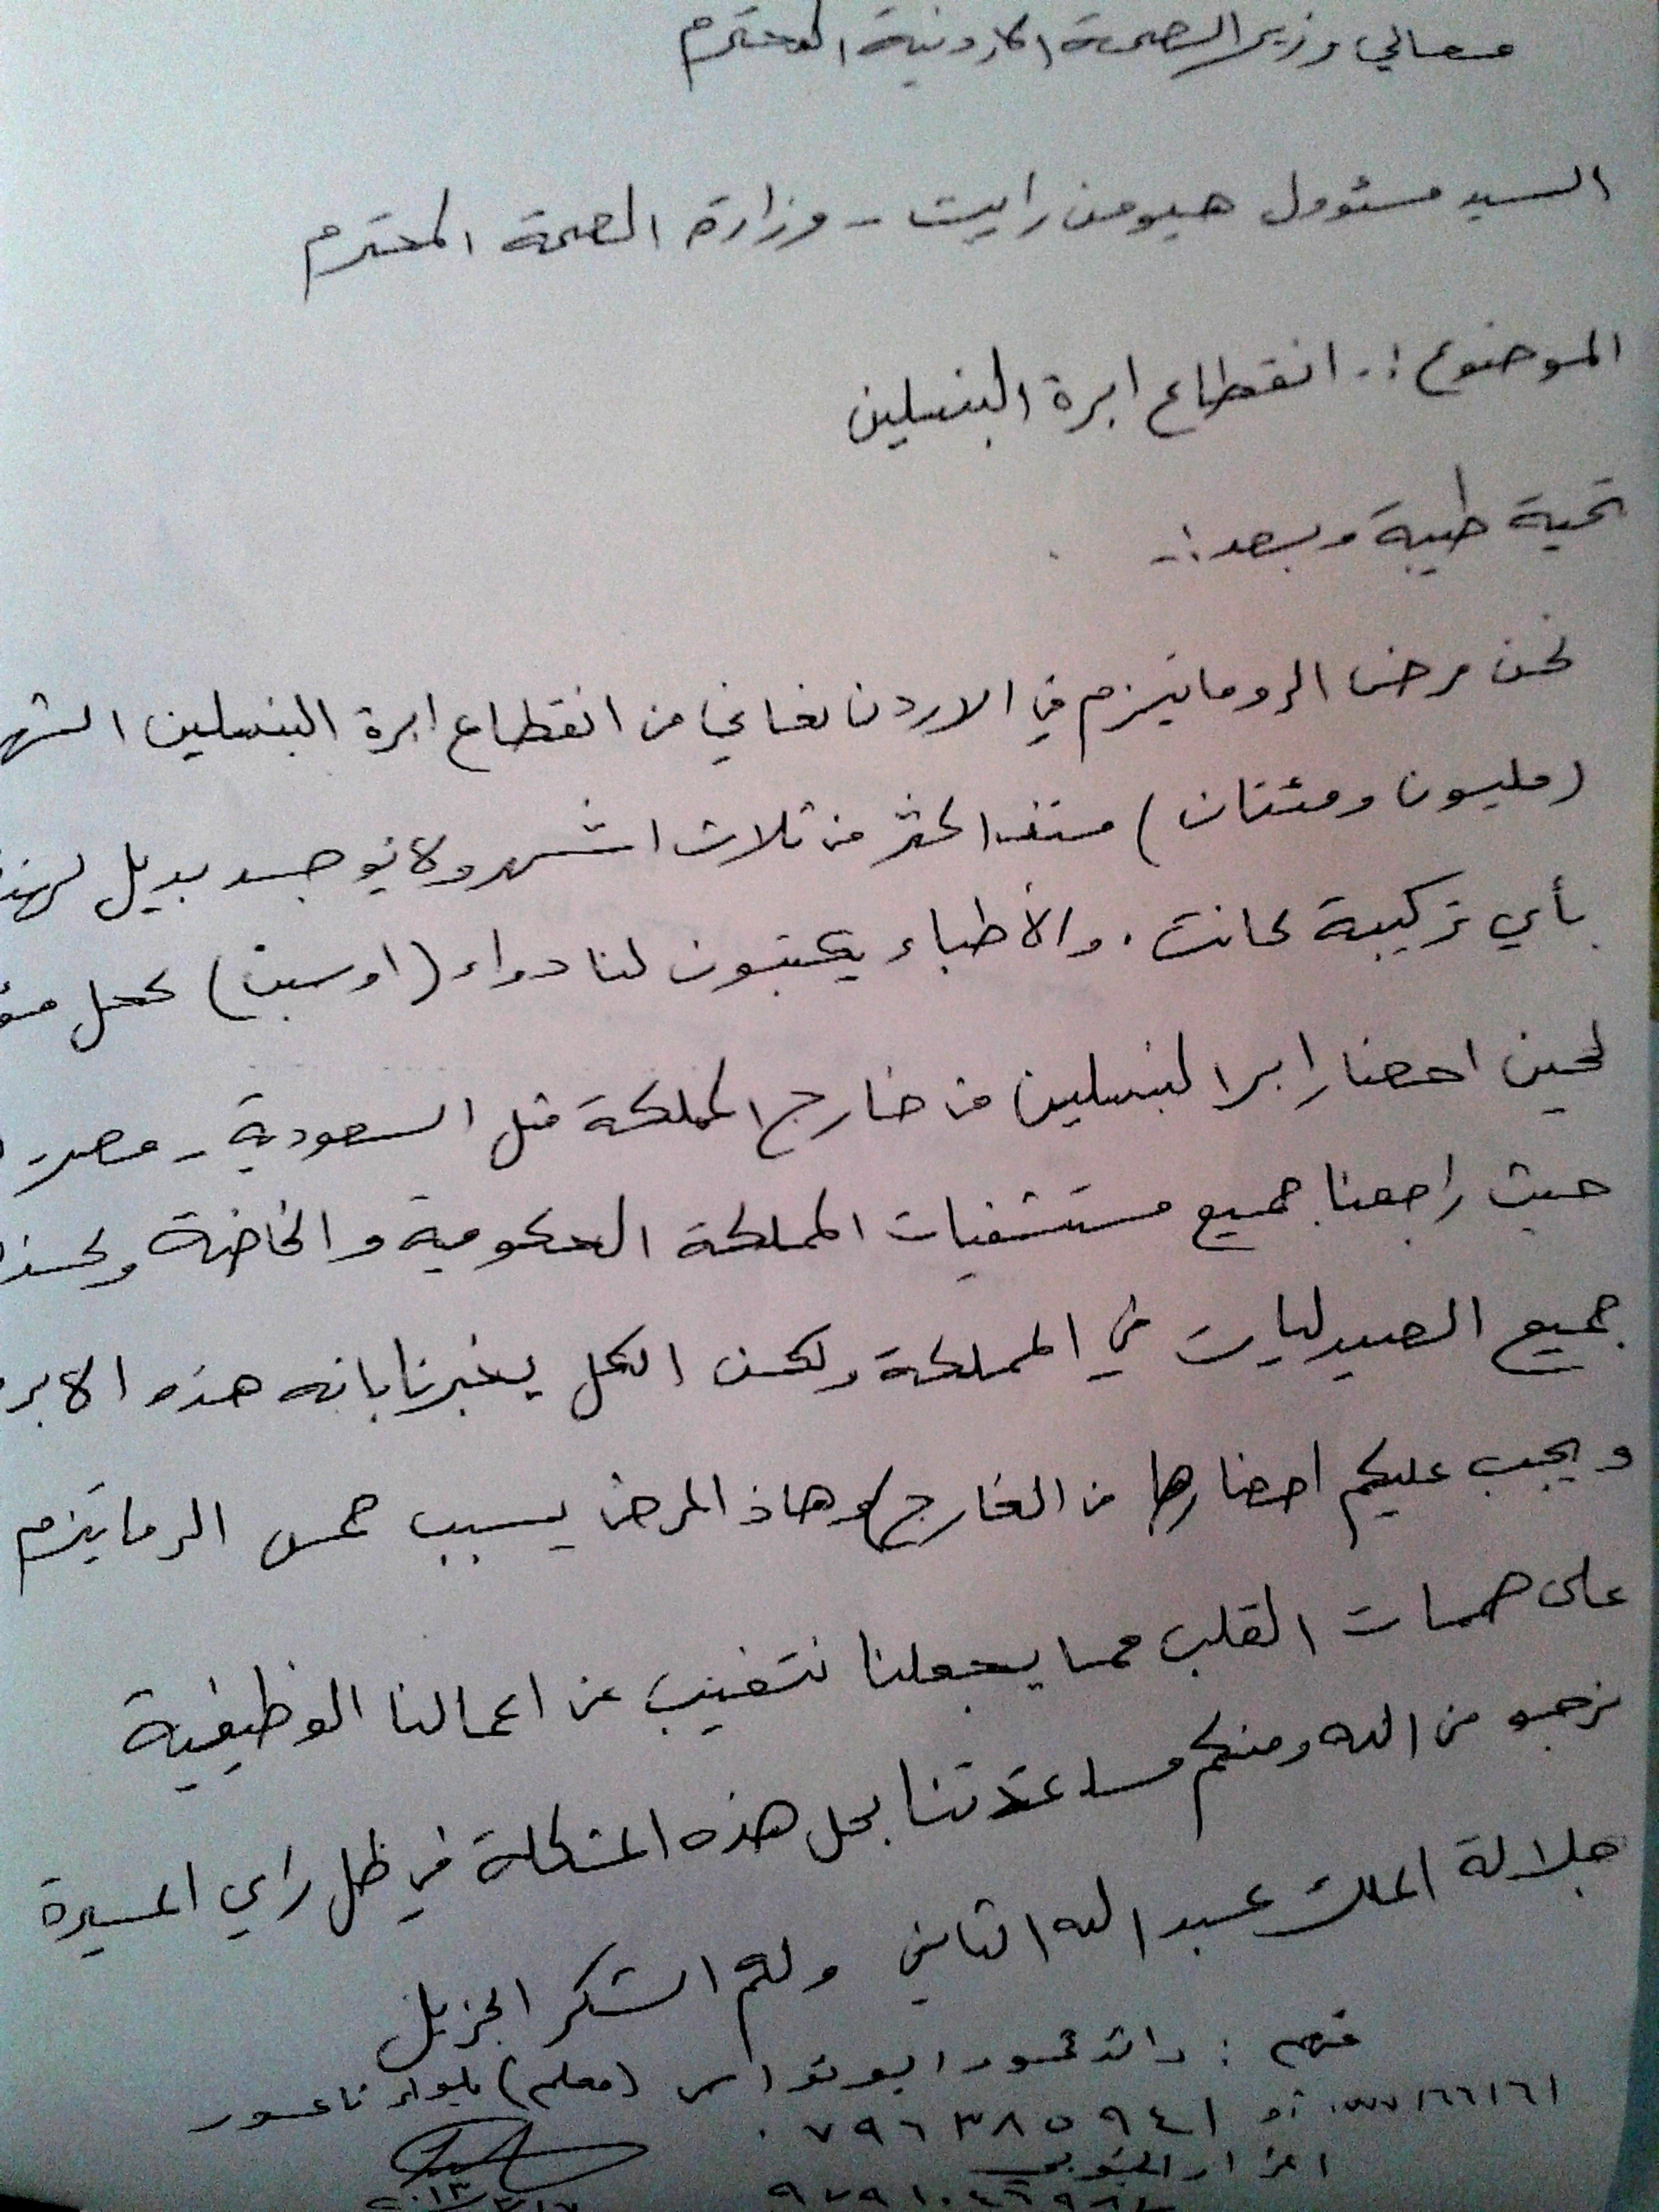 معالي وزير الصحة الاردنية المحترم
السيد مسئوول هيومن رايت - وزارة الصحة المحترم
الموضوع :. انقطاع ابرة البنسلين
تحية طيبة وبعد :-
نحن مرضى الروماتيزم في الاردن نعاني من انقطاع ابرة البنسلين الشه
(مليون ومئتان) منذ اكثر من ثلاث اشهر ولا يوجد بديل لهذ
بأي تركيبة كانت . والأطباء يكتبون لنا دواء (اوسبن) كحل مؤ
لحين احضار ابر البنسلين من خارج المملكة مثل السعودية - مصر -
حيث راجعنا جميع مستشفيات المملكة الحكومية والخاصة وكذ
جميع الصيدليات في المملكة ولكن الكل يخبرنا بانه هذه الابر
ويجب عليكم احضارها من الخارج وهاذ المرض يسبب حمى الرماتيزم
على صمامات القلب مما يجعلنا نتغيب عن اعمالنا الوظيفية
نرجو من الله ومنكم مساعدتنا بحل هذه المشكلة في ظل راعي المسيرة
جلالة الملك عبد الله الثاني ولكم الشكر الجزيل
منهم : رائد محمود ابو نواس (معلم) بلواء ناعور
أو ٠٧٩٦٣٨٥٩٤١